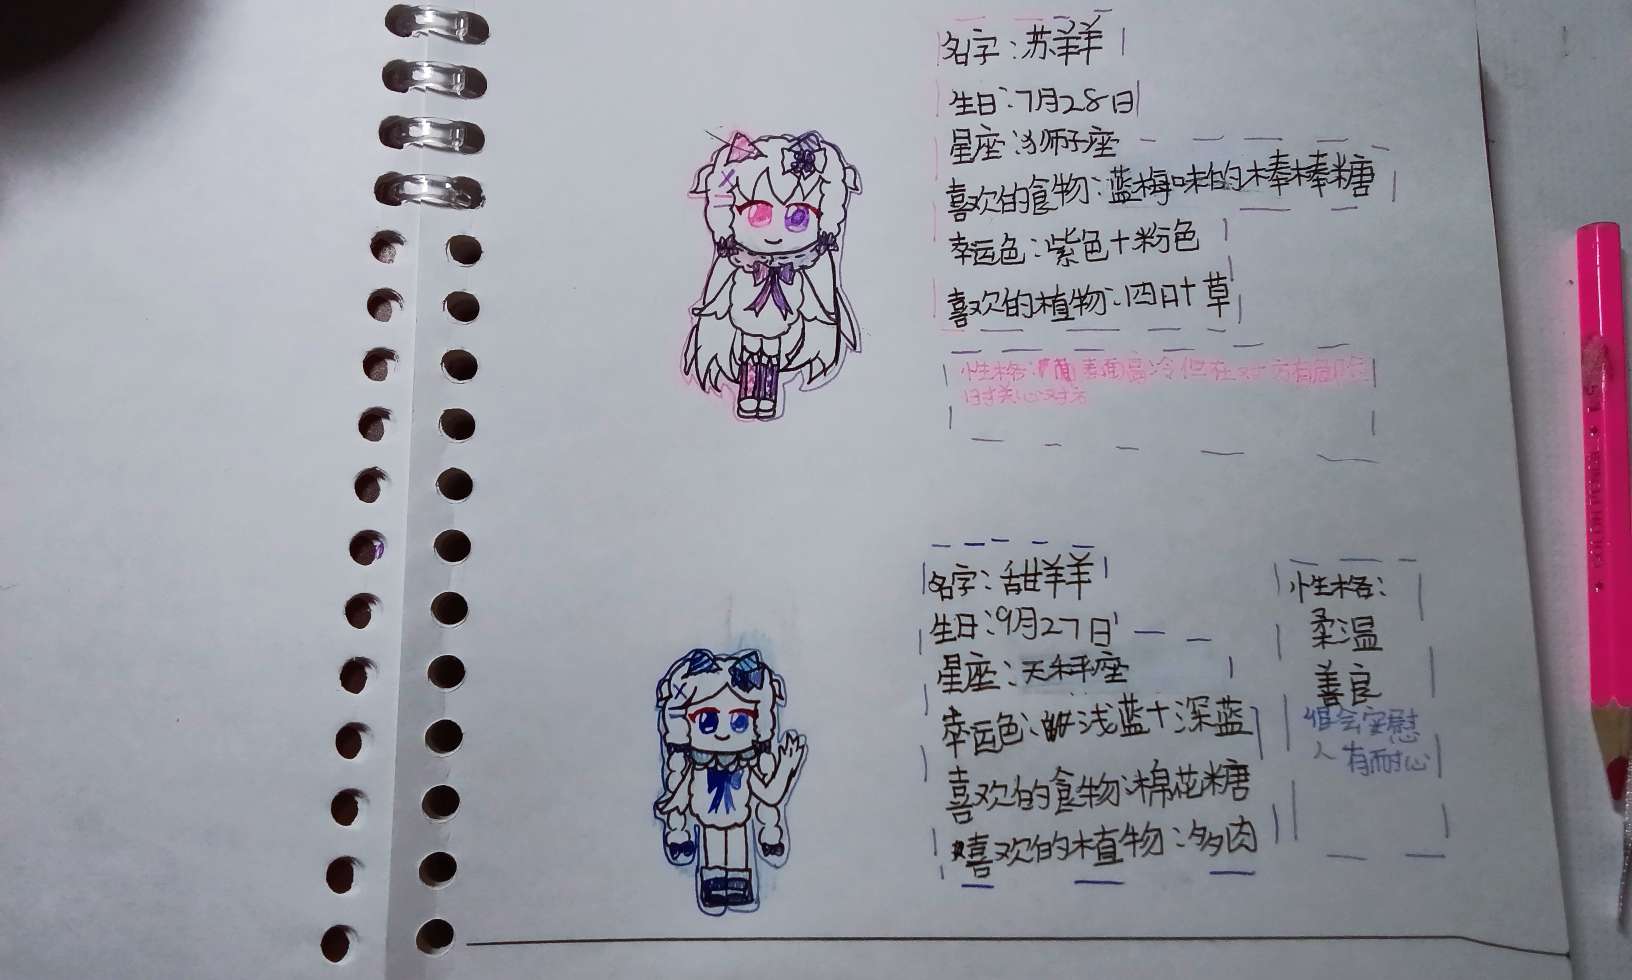 名字：苏羊羊
生日：7月28日
星座：狮子座
喜欢的食物：蓝梅味的棒棒糖
幸运色：紫色+粉色
喜欢的植物：四叶草
性格：表面高冷但在对方有困难
时关心对方
名字：甜羊羊
生日：9月27日
星座：天秤座
幸运色：浅蓝+深蓝
喜欢的食物：棉花糖
喜欢的植物：多肉
性格：
柔温
善良
很会安慰
人有耐心